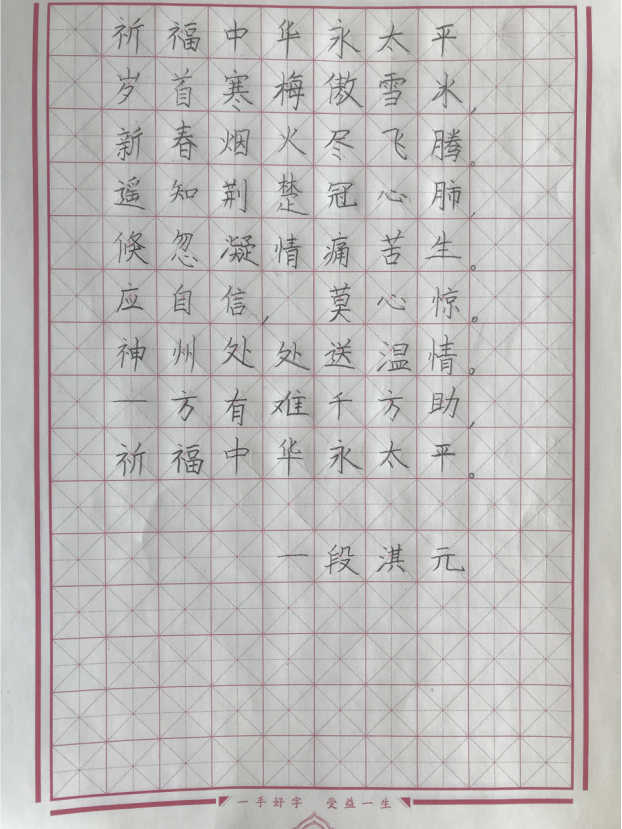 祈福中华永太平
岁首寒梅傲雪冰,
新春烟火尽飞腾。
遥知荆楚冠心肺,
倏忽凝情痛苦生。
应自信,莫心惊。
神州处处送温情。
一方有难千方助,
祈福中华永太平。
一段淇元
一手好字 受益一生